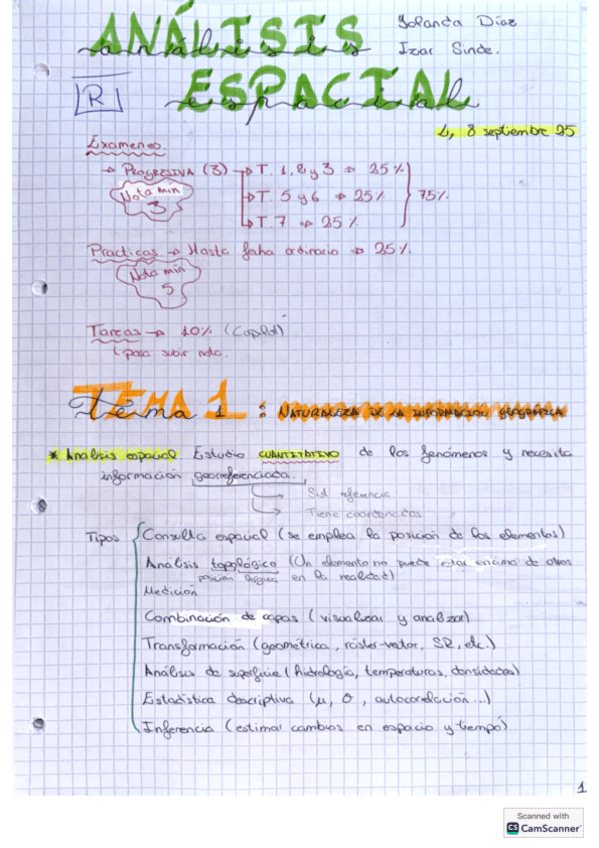 ANÁLISIS
análisis
Yolanda Díaz
Izar Sinde.
ESPACIAL
espacial
R
L, 8 septiembre 25
Examenes.
→ PROGRESIVA (3) → T. 1, 2 y 3 ⇒ 25%
Nota min 3
→ T. 5 y 6 ⇒ 25%
75%
→ T. 7 ⇒ 25%
Practicas → Hasta fecha ordinaria ⇒ 25%.
Nota min 5
Tareas → 10% (Copilot)
para subir nota.
TEMA 1
Tema 1 : NATURALEZA DE LA INFORMACIÓN GEOGRÁFICA
* Análisis espacial Estudio CUANTITATIVO de los fenómenos y necesita
información georreferenciada.
Sist referencia
Tiene coordenadas
Tipos Consulta espacial (se emplea la posición de los elementos)
Análisis topológico (Un elemento no puede estar encima de otros
posición lógica en la realidad)
Medición
Combinación de capas (visualizar y analizar)
Transformación (geométrica, ráster-vector, SR, etc.)
Análisis de superficie (hidrología, temperaturas, densidades)
Estadística descriptiva (μ, σ, autocorrelación...)
Inferencia (estimar cambios en espacio y tiempo)
1
Scanned with
CS CamScanner